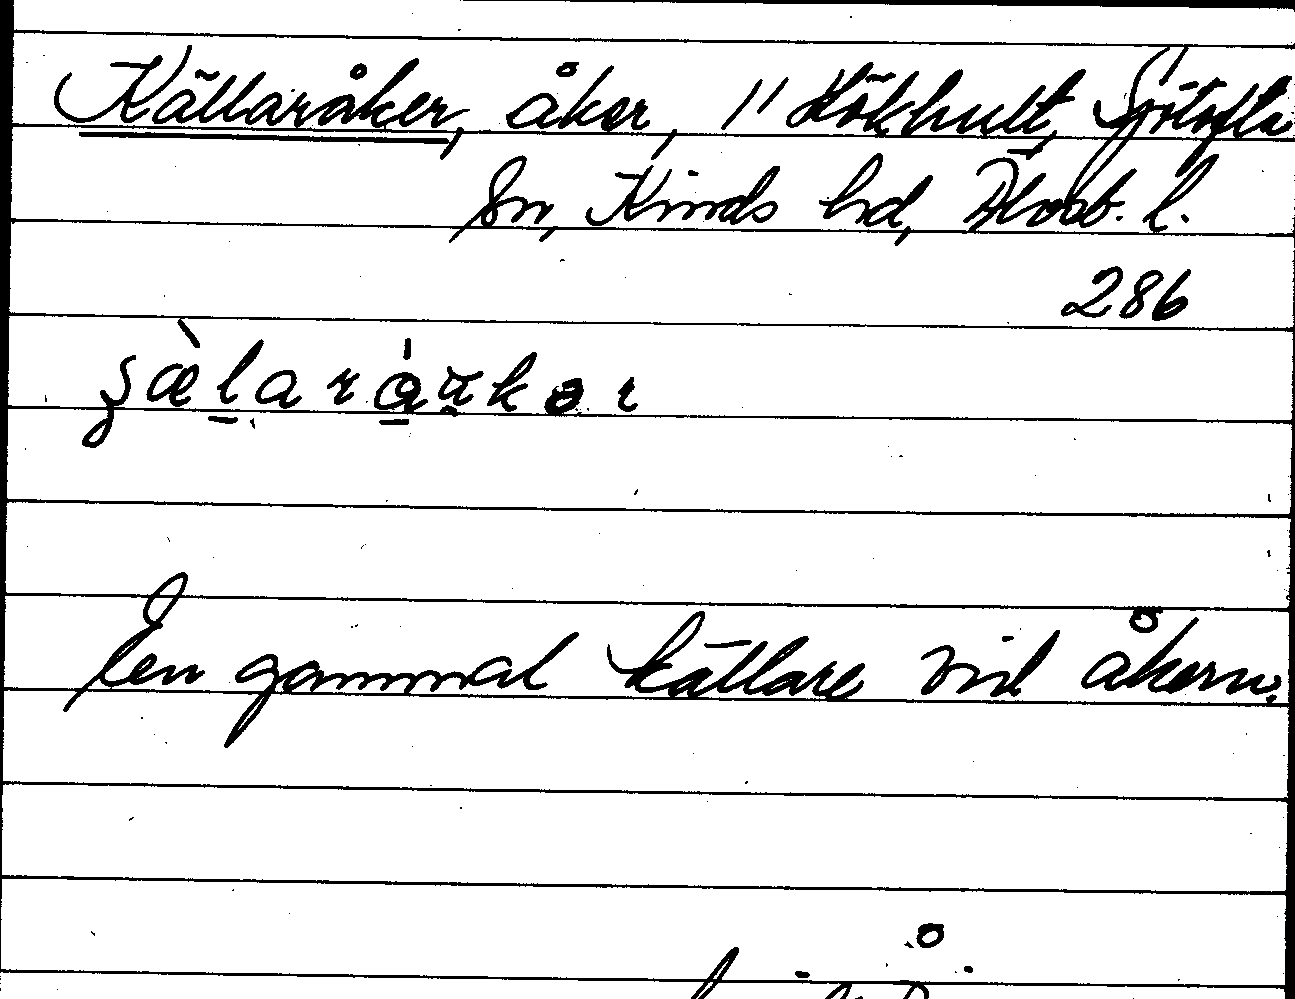 Källaråker, åker, 1/1 Hökhult, Sjötofta
sn, Kinds hd, Älvsb. l.
286
En gammal källare vid åkern.